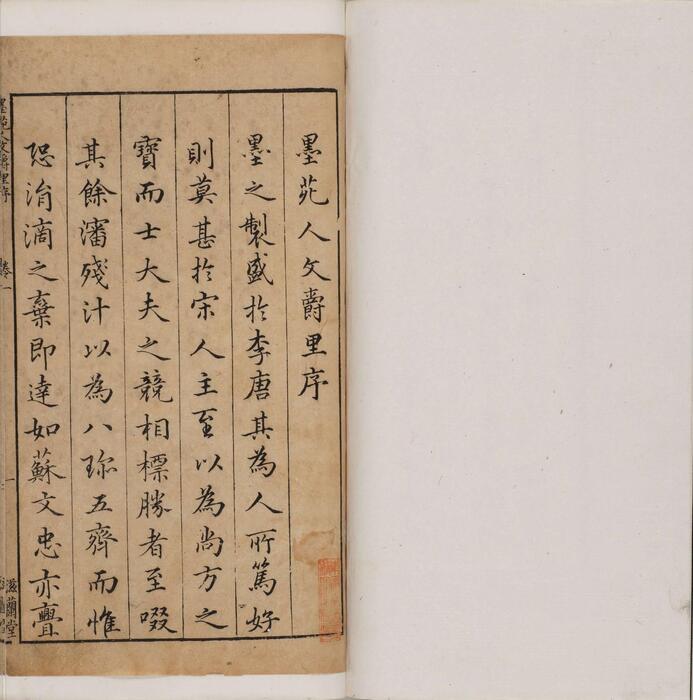 墨苑人文爵里序
墨之製盛扵李唐其為人所篤好
則莫甚扵宋人主至以為尚方之
寳而士大夫之競相標勝者至啜
其餘瀋殘汁以為八珎五齊而惟
恐涓滴之棄即達如蘇文忠亦亹
墨苑人文爵里序
卷一
一
滋蘭堂